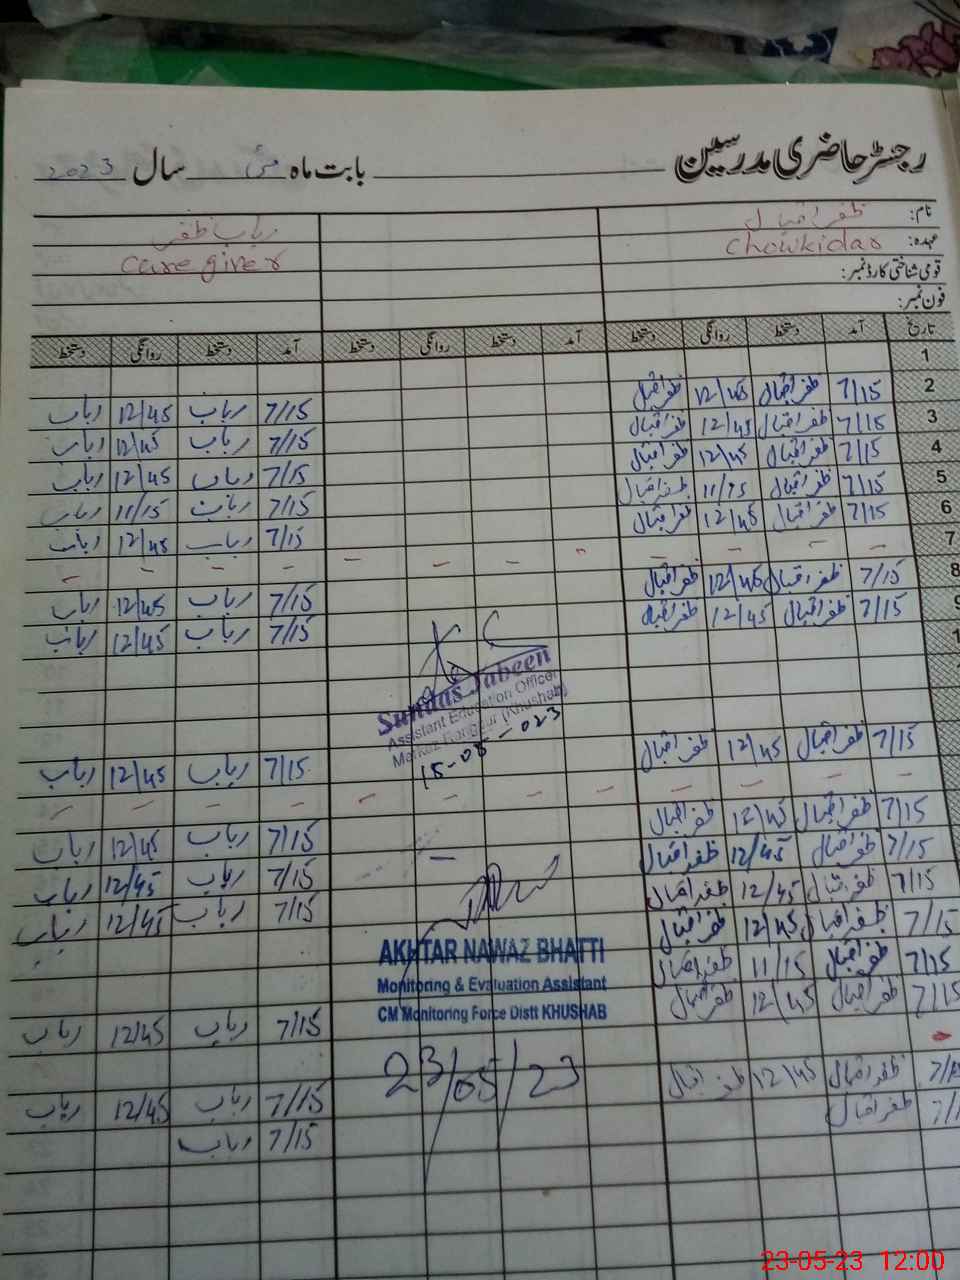 رجسٹر حاضری مدرسین بابت ماہ مئی سال 2023
نام: ظفر اقبال رباب ظفر
عہدہ: Chowkidar Care giver
قومی شناختی کارڈ نمبر:
فون نمبر:
تاریخ آمد دستخط روانگی دستخط آمد دستخط روانگی دستخط آمد دستخط روانگی دستخط
1
2 7/15 ظفر اقبال 12/45 ظفر اقبال 7/15 رباب 12/45 رباب
3 7/15 ظفر اقبال 12/45 ظفر اقبال 7/15 رباب 12/45 رباب
4 7/15 ظفر اقبال 12/45 ظفر اقبال 7/15 رباب 12/45 رباب
5 7/15 ظفر اقبال 11/15 ظفر اقبال 7/15 رباب 11/15 رباب
6 7/15 ظفر اقبال 12/45 ظفر اقبال 7/15 رباب 12/45 رباب
7 - - - - - - - - - -
8 7/15 ظفر اقبال 12/45 ظفر اقبال 7/15 رباب 12/45 رباب
9 7/15 ظفر اقبال 12/45 ظفر اقبال 7/15 رباب 12/45 رباب
1
Sundas Jabeen
Assistant Education Officer
Markaz Rangpur (Khushab)
15-05-023
7/15 ظفر اقبال 12/45 ظفر اقبال 7/15 رباب 12/45 رباب
- - - - - - - - - - -
7/15 ظفر اقبال 12/45 ظفر اقبال 7/15 رباب 12/45 رباب
7/15 ظفر اقبال 12/45 ظفر اقبال 7/15 رباب 12/45 رباب
7/15 ظفر اقبال 12/45 ظفر اقبال 7/15 رباب 12/45 رباب
7/15 ظفر اقبال 12/45 ظفر اقبال
7/15 ظفر اقبال 11/15 ظفر اقبال
7/15 ظفر اقبال 12/45 ظفر اقبال 7/15 رباب 12/45 رباب
AKHTAR NAWAZ BHATTI
Monitoring & Evaluation Assistant
CM Monitoring Force Distt KHUSHAB
23/05/23
ظفر اقبال 12/45 ظفر اقبال 7/15 رباب 12/45 رباب
ظفر اقبال 7/15 رباب
23-05-23 12:00